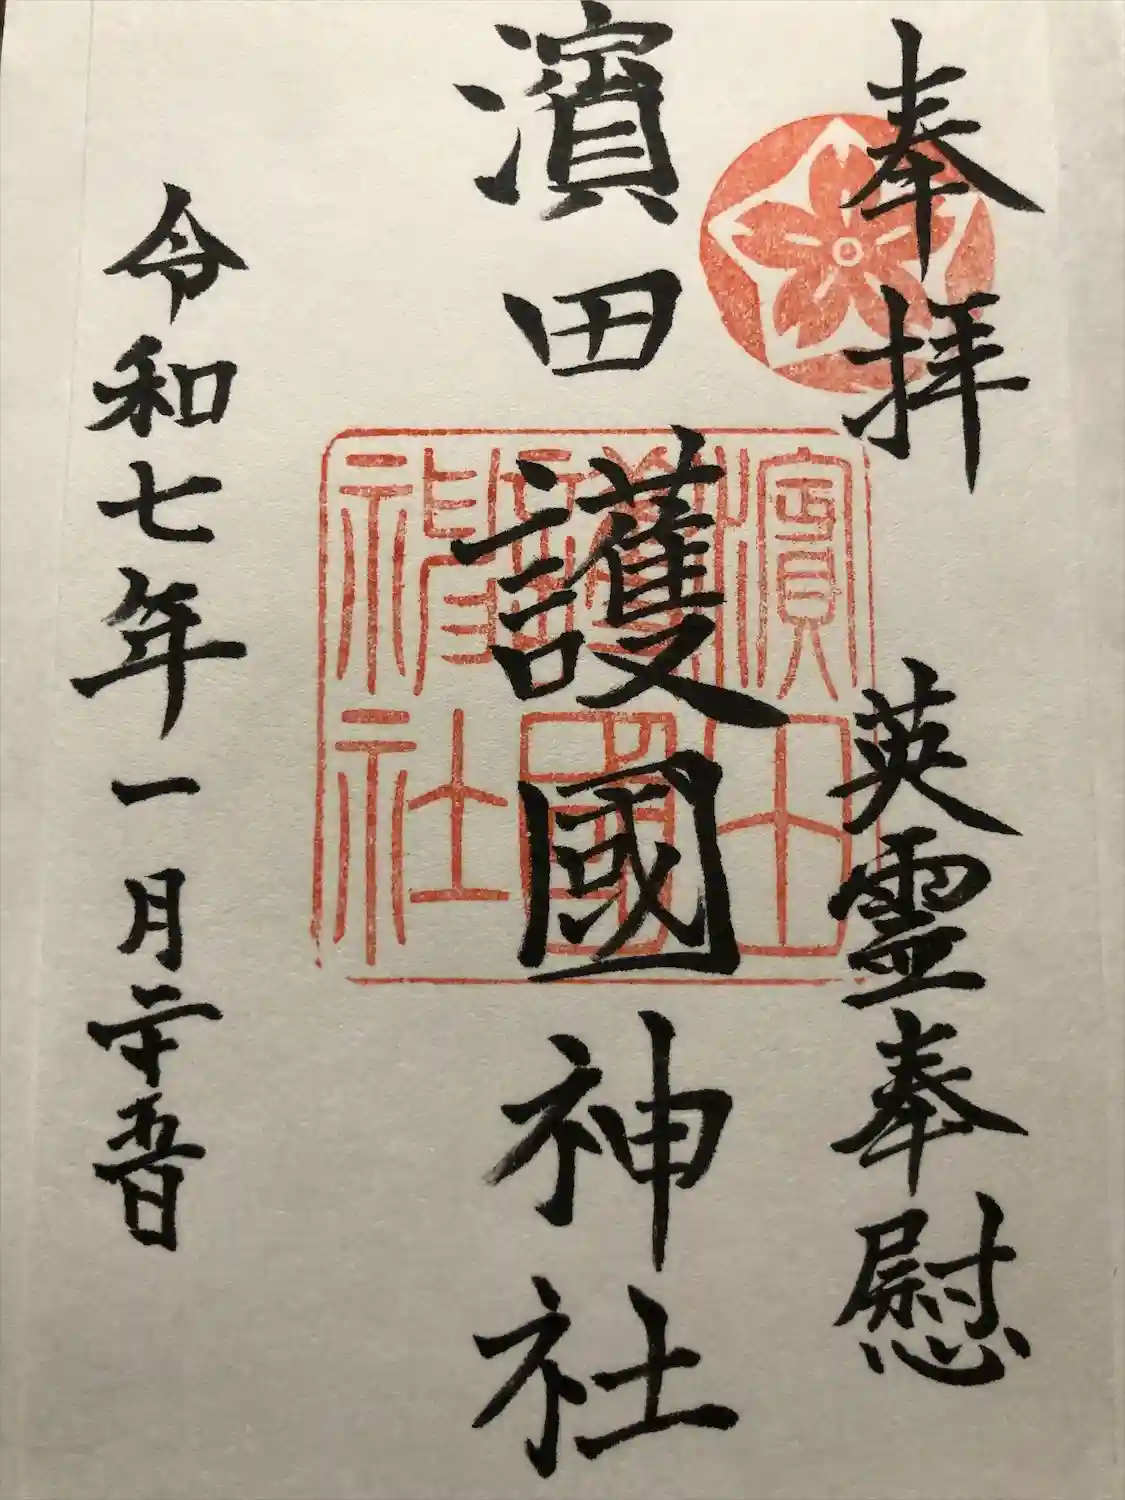 奉拝 英霊奉慰
濱田護國神社
令和七年一月二十五日
濱田
護國
神社